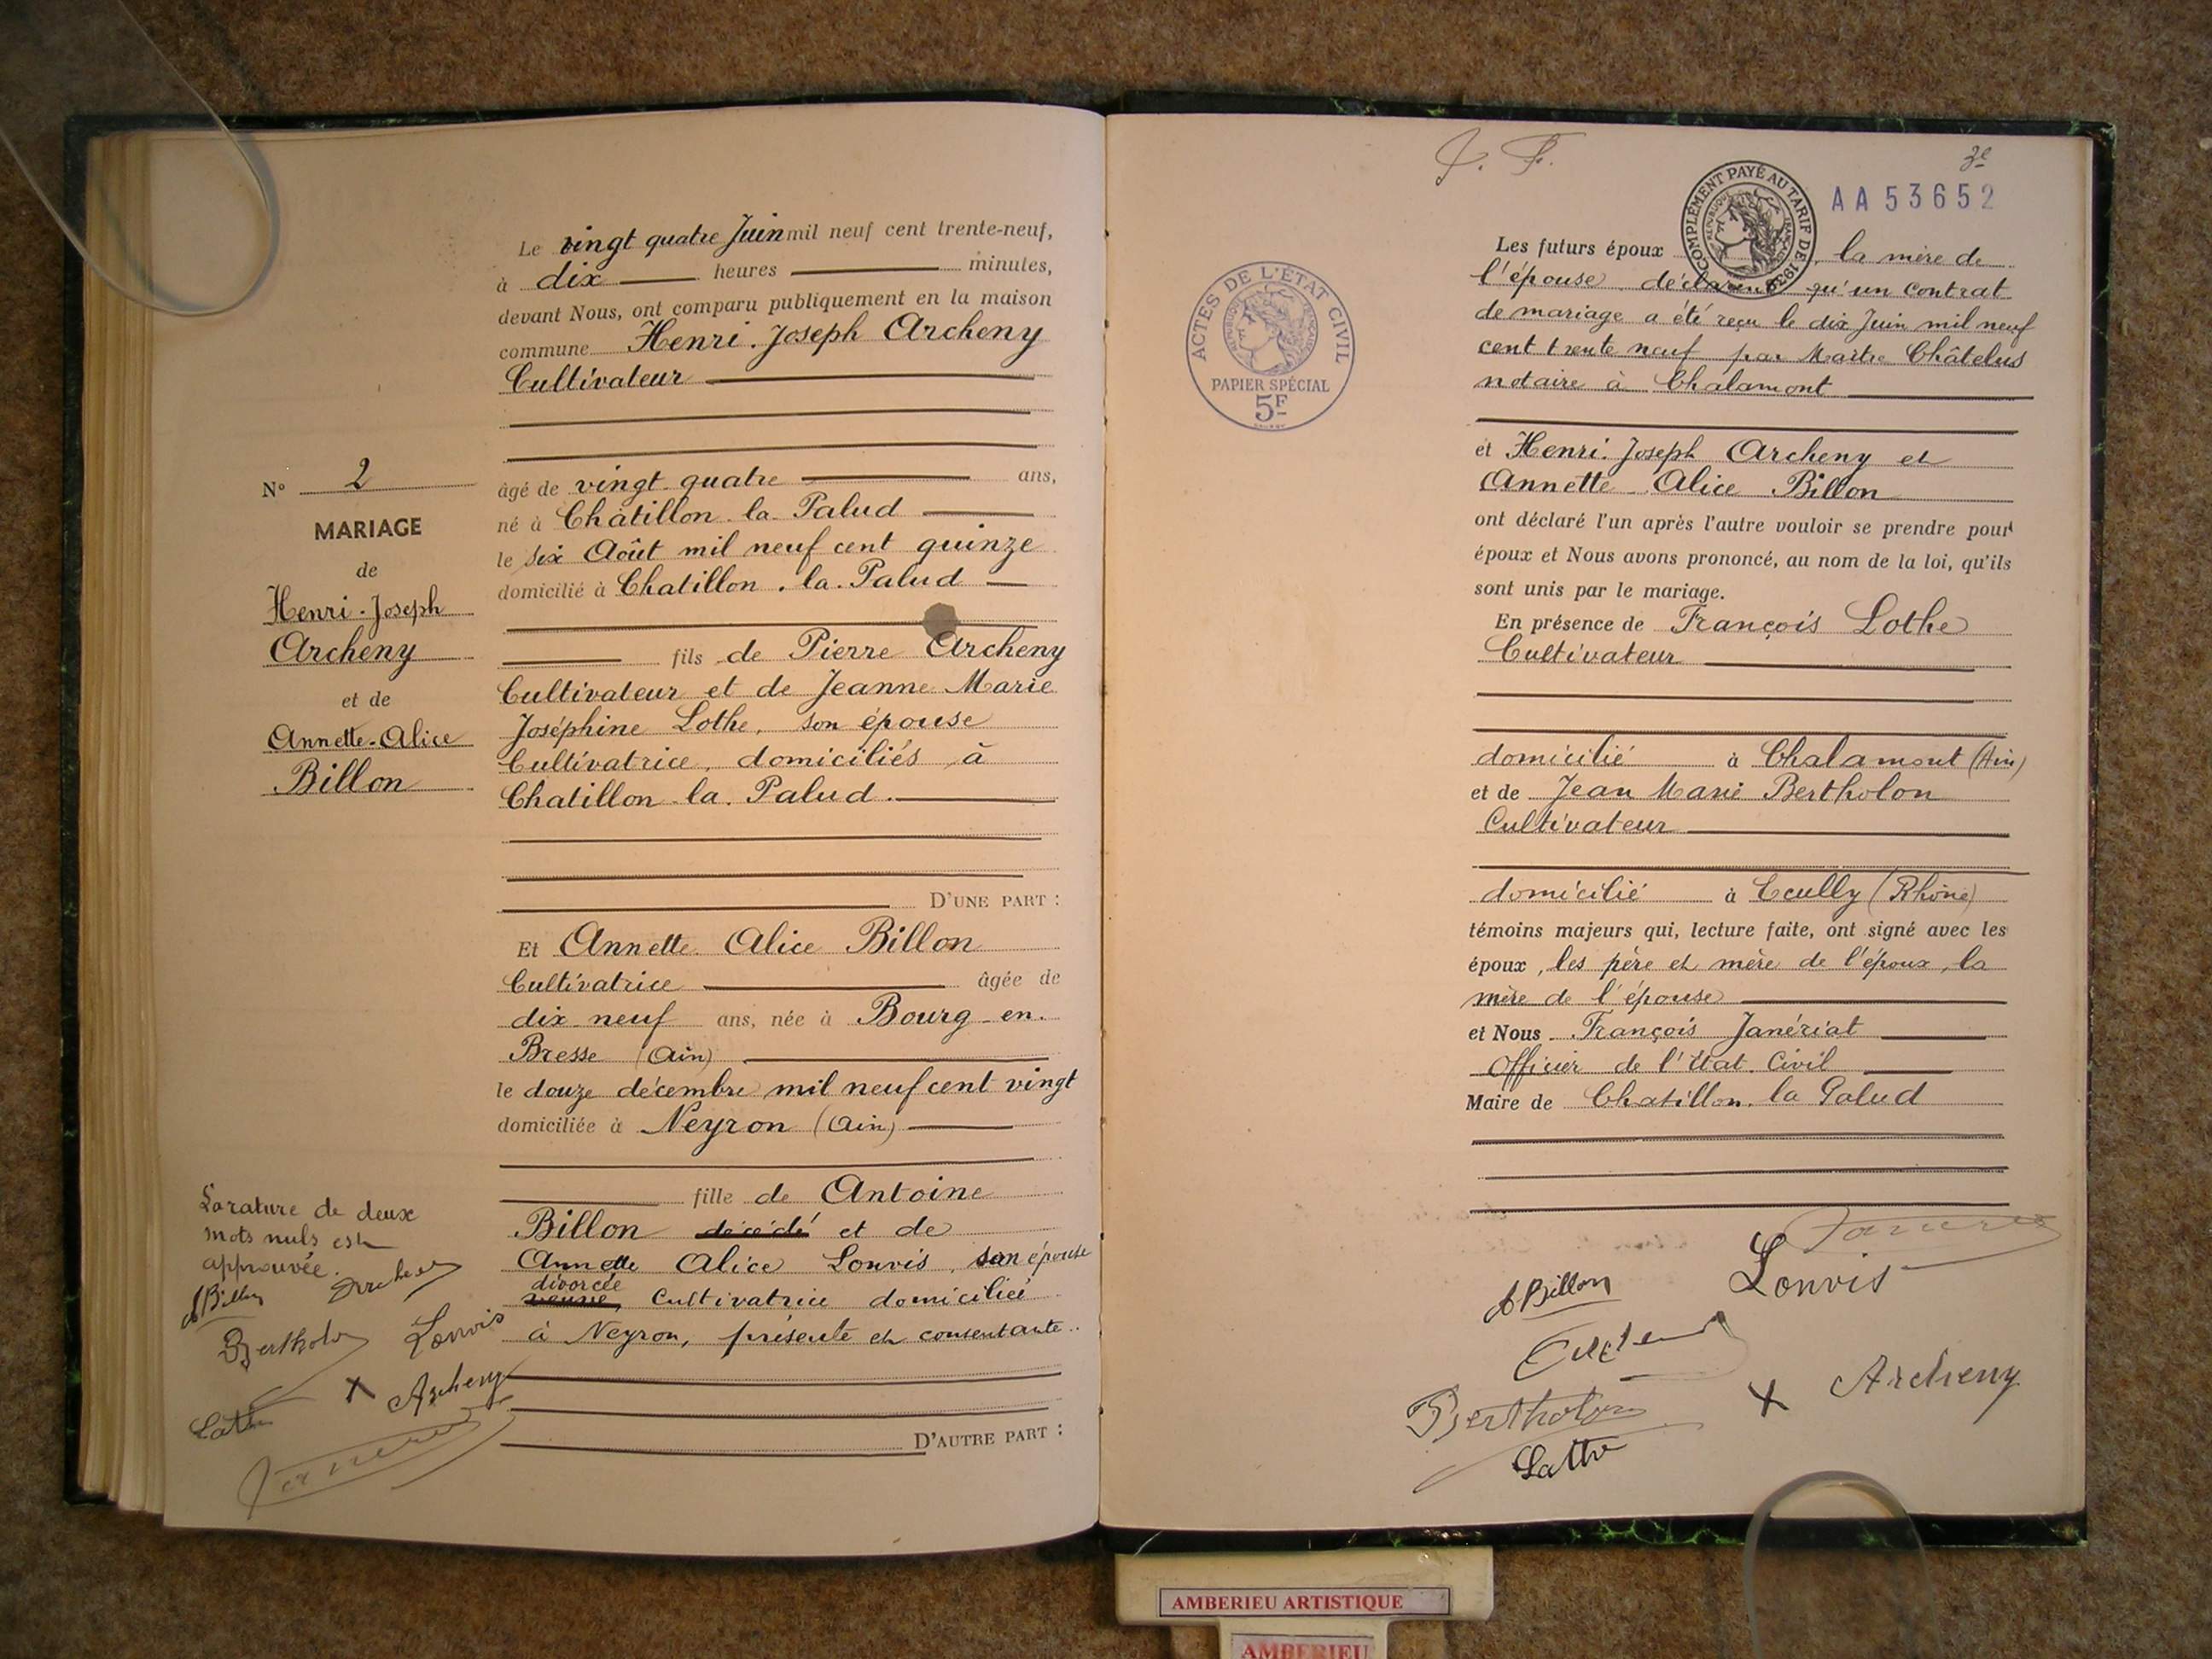 Le vingt quatre Juin mil neuf cent trente-neuf,
à dix heures minutes,
devant Nous, ont comparu publiquement en la maison
commune Henri-Joseph Archeny
Cultivateur
âgé de vingt quatre ans,
né à Châtillon-la-Palud
le six Août mil neuf cent quinze
domicilié à Chatillon-la-Palud
fils de Pierre Archeny
Cultivateur et de Jeanne Marie
Joséphine Lothe, son épouse
Cultivatrice, domiciliés à
Chatillon-la-Palud.
D'UNE PART :
Et Annette Alice Billon
Cultivatrice âgée de
dix neuf ans, née à Bourg-en-
Bresse (Ain)
le douze décembre mil neuf cent vingt
domiciliée à Neyron (Ain)
fille de Antoine
Billon décédé et de
Annette Alice Lonvis, son épouse
divorcée
veuve, Cultivatrice domiciliée
à Neyron, présente et consentante.
D'AUTRE PART :
N° 2
MARIAGE
de
Henri-Joseph
Archeny
et de
Annette-Alice
Billon
La rature de deux
mots nuls est
approuvée.
ABillon Archeny
Bertholon Lonvis
X Archeny
Lothe
J. F.
3e
AA53652
COMPLÉMENT PAYÉ AU TARIF DE
ACTES DE L'ÉTAT CIVIL
PAPIER SPÉCIAL
5F
Les futurs époux, la mère de
l'épouse déclarent qu'un contrat
de mariage a été reçu le dix Juin mil neuf
cent trente neuf par Maître Châtelus
notaire à Chalamont
et Henri-Joseph Archeny et
Annette Alice Billon
ont déclaré l'un après l'autre vouloir se prendre pour
époux et Nous avons prononcé, au nom de la loi, qu'ils
sont unis par le mariage.
En présence de François Lothe
Cultivateur
domicilié à Chalamont (Ain)
et de Jean Marie Bertholon
Cultivateur
domicilié à Ecully (Rhône)
témoins majeurs qui, lecture faite, ont signé avec les
époux, les père et mère de l'époux, la
mère de l'épouse
et Nous François Janériat
Officier de l'Etat-Civil
Maire de Chatillon-la-Palud
ABillon
Lonvis
Bertholon X Archeny
Lothe
AMBERIEU ARTISTIQUE
AMBERIEU